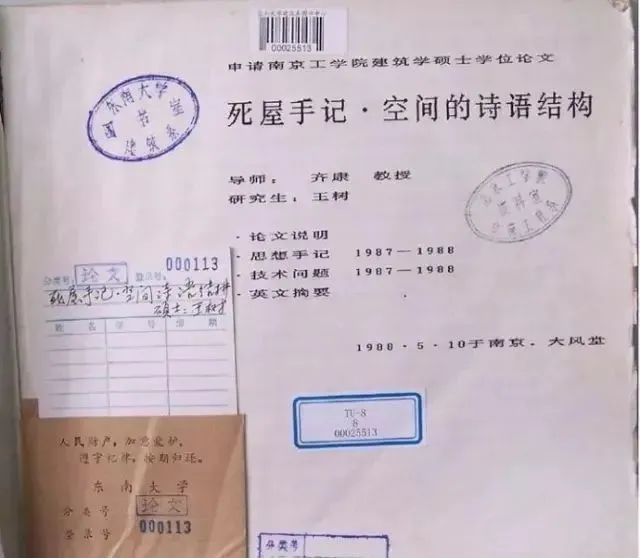 00025513
申请南京工学院建筑学硕士学位论文
死屋手记·空间的诗语结构
导师: 齐康 教授
研究生: 王树
·论文说明
·思想手记 1987—1988
·技术问题 1987—1988
·英文摘要
1988·5·10于南京.大风堂
东南大学
图书室
建筑系
资料室
分类号: 论文 登录号: 000113
死屋手记·空间诗语结构
硕士:王树
姓名 学号 日期
TU-8
8
00025513
人民财产, 加意爱护,
遵守纪律, 按期归还。
东南大学
分类号 论文
登录号 000113
分类号